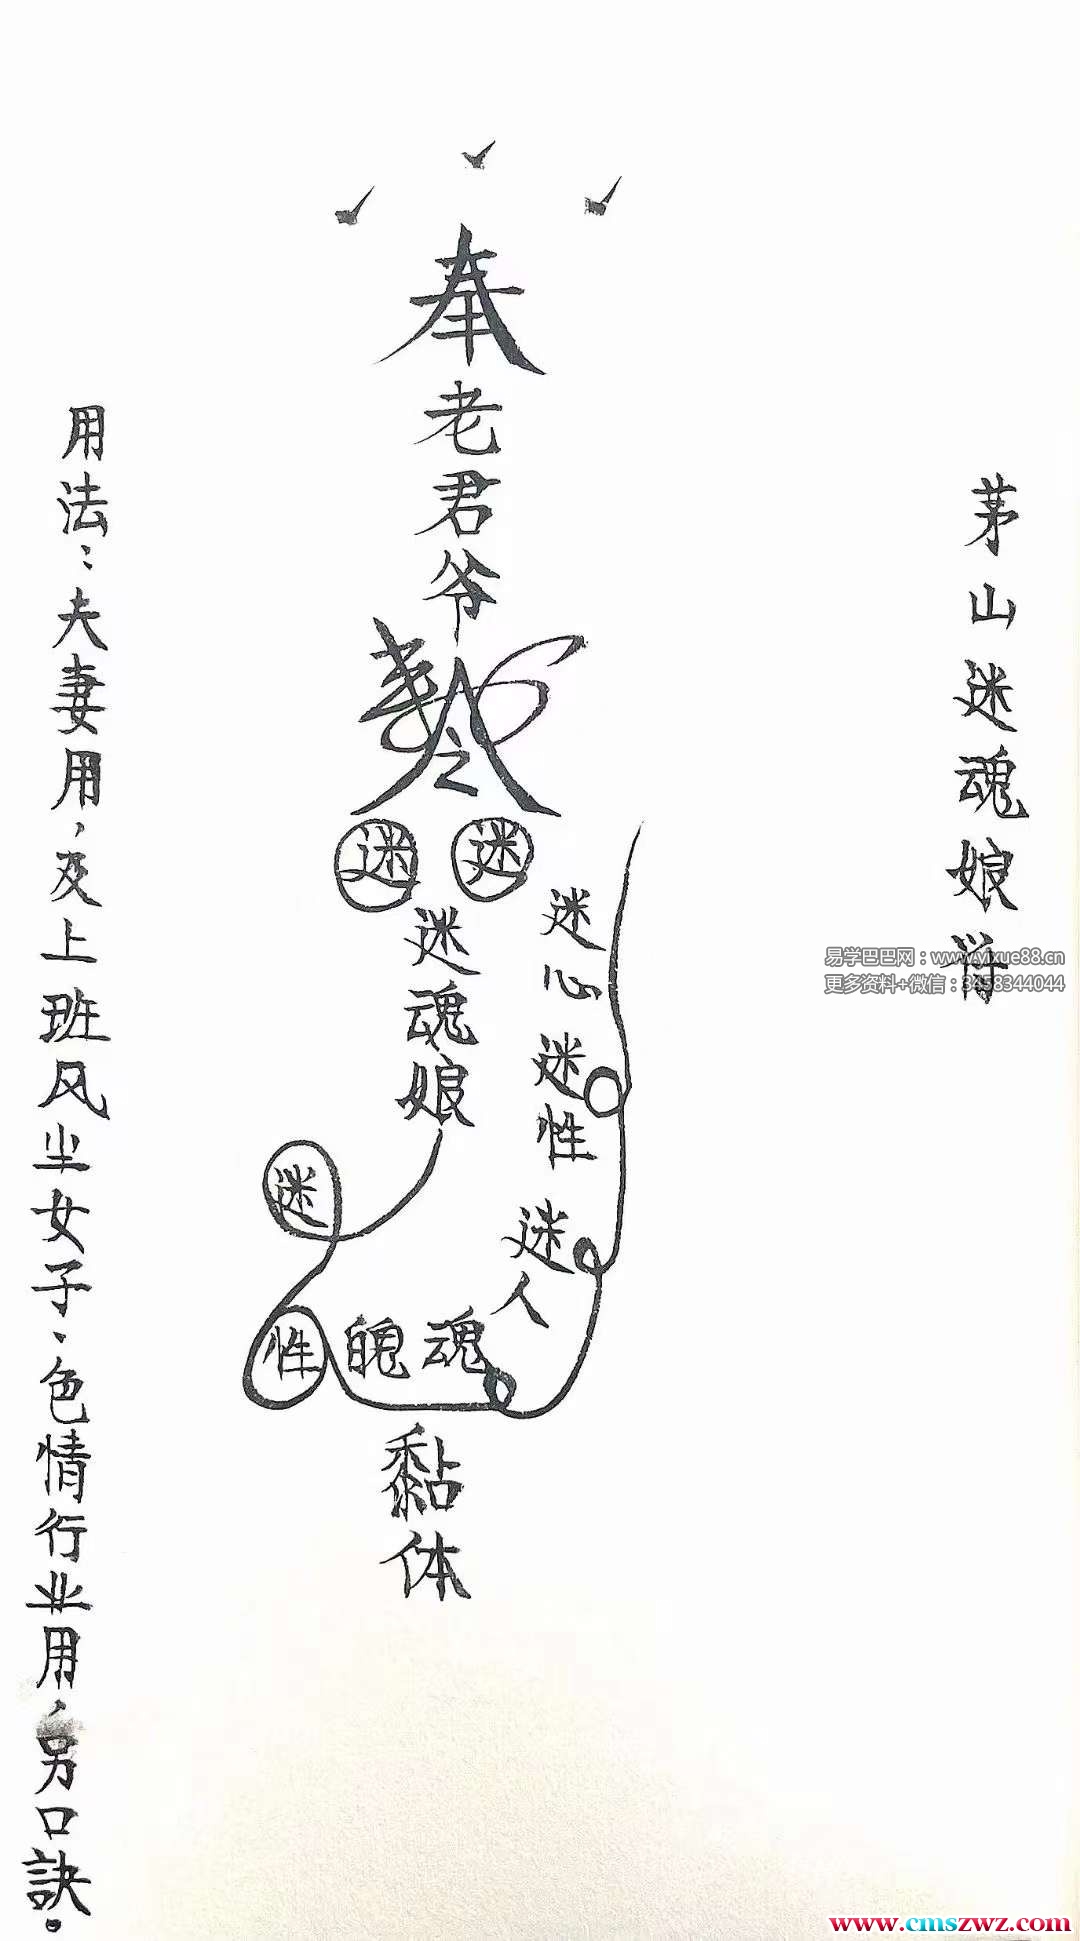 茅山迷魂娘符
奉
老君爷
令
迷 迷
迷魂娘
迷心 迷性 迷人
迷
性 魄 魂
黏体
用法：夫妻用，及上班风尘女子、色情行业用，另口訣。
易学巴巴网：www.yixue88.cn
更多资料+微信：3458344044
www.cmszwz.com